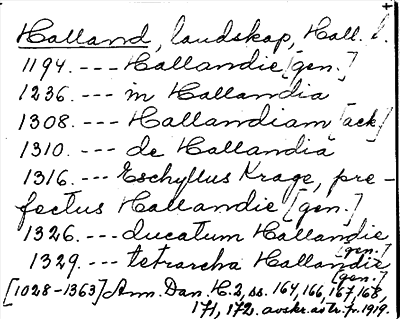 Halland, landskap, Hall. l.
1194. --- Hallandie [gen.]
1236. --- in Hallandia
1308. --- Hallandiam [ack]
1310. --- de Hallandia
1316. --- Eschyllus Krage, pre-
fectus Hallandie [gen.]
1326. --- ducatum Hallandie [gen.]
1329. --- tetrarcha Hallandie [gen.]
[1028-1363] Ann. Dan. H. 2, ss. 164, 166, 167, 168,
171, 172. avskr. fr. 1919.